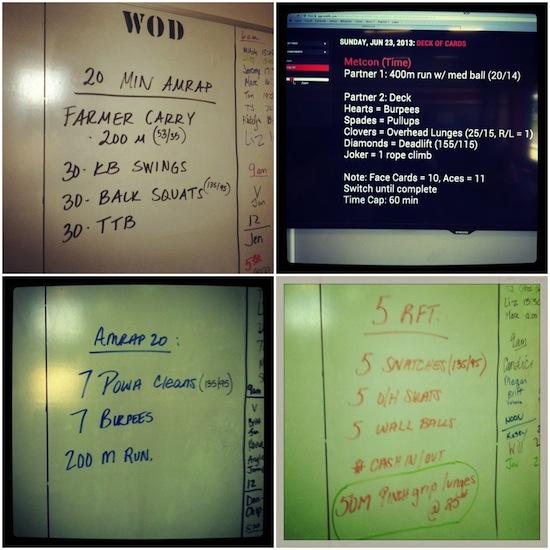 WOD
20 MIN AMRAP
FARMER CARRY
· 200 M (53/35)
30 · KB SWINGS
30 · BACK SQUATS (135/95)
30 · TTB
6am
Jeremy
9am
V
Jan
12
Jen
SUNDAY, JUN 23, 2013: DECK OF CARDS
Metcon (Time)
Partner 1: 400m run w/ med ball (20/14)
Partner 2: Deck
Hearts = Burpees
Spades = Pullups
Clovers = Overhead Lunges (25/15, R/L = 1)
Diamonds = Deadlift (155/115)
Joker = 1 rope climb
Note: Face Cards = 10, Aces = 11
Switch until complete
Time Cap: 60 min
SAMSUNG
AMRAP 20:
7 POWA Cleans (135/95)
7 BURPEES
200 M RUN.
9am
V
Britt
12
Dan
Chip
5:30
5 RFT.
5 SNATCHES (135/95)
5 O/H SQUATS
5 WALL BALLS
# CASH IN/OUT
50M PINCH grip lunges
@ 25#
Liz
9am
Candice
Megan
Britt
NOON
Will